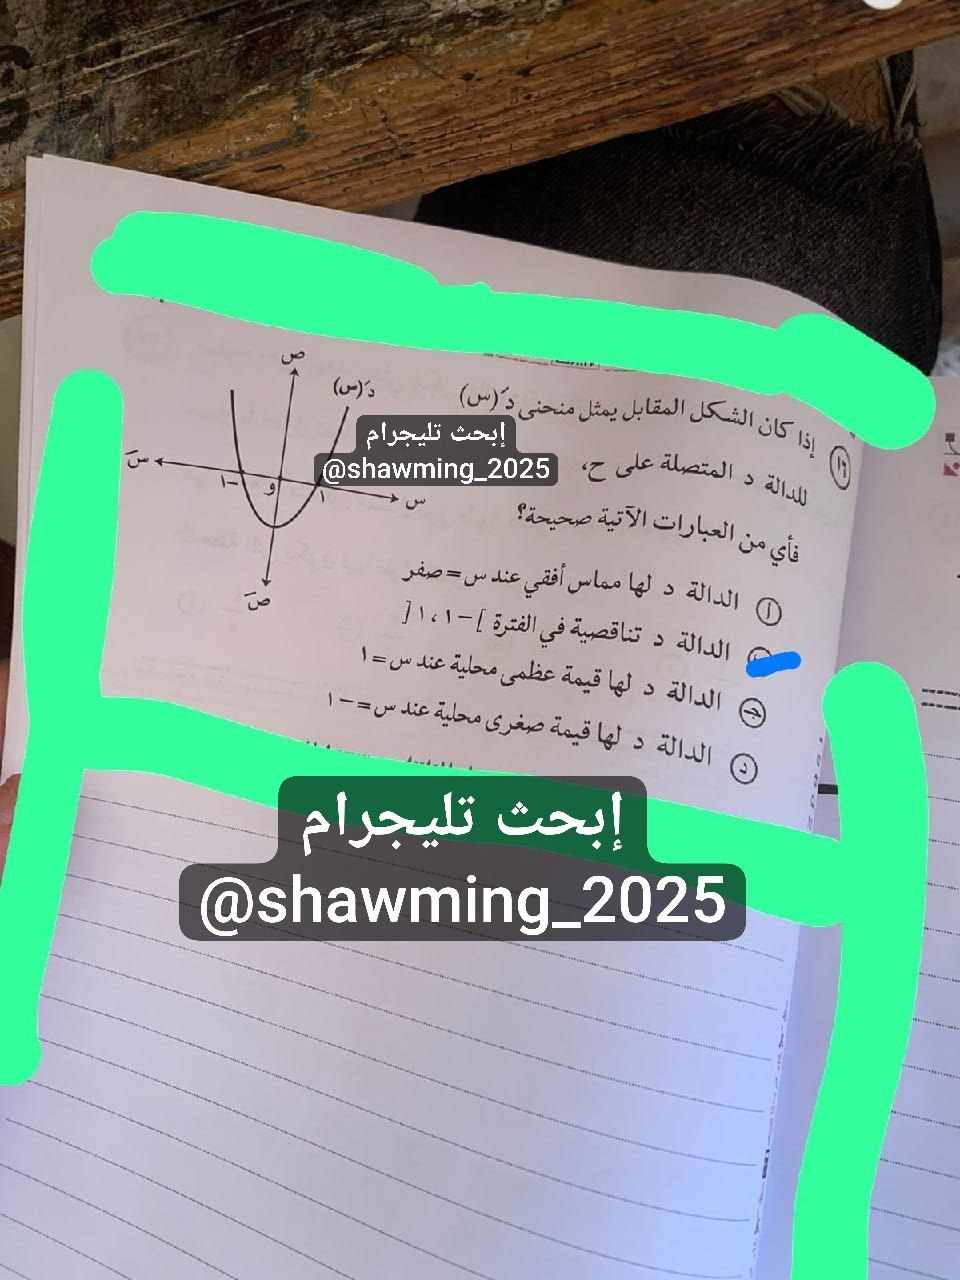 ١٦ إذا كان الشكل المقابل يمثل منحنى دَ(س)
للدالة د المتصلة على ح،
فأي من العبارات الآتية صحيحة؟
أ الدالة د لها مماس أفقي عند س = صفر
الدالة د تناقصية في الفترة ]-١، ١[
ج الدالة د لها قيمة عظمى محلية عند س = ١
د الدالة د لها قيمة صغرى محلية عند س = -١
ص
دَ(س)
سَ
-١
و
١
س
صَ
إبحث تليجرام
@shawming_2025
إبحث تليجرام
@shawming_2025